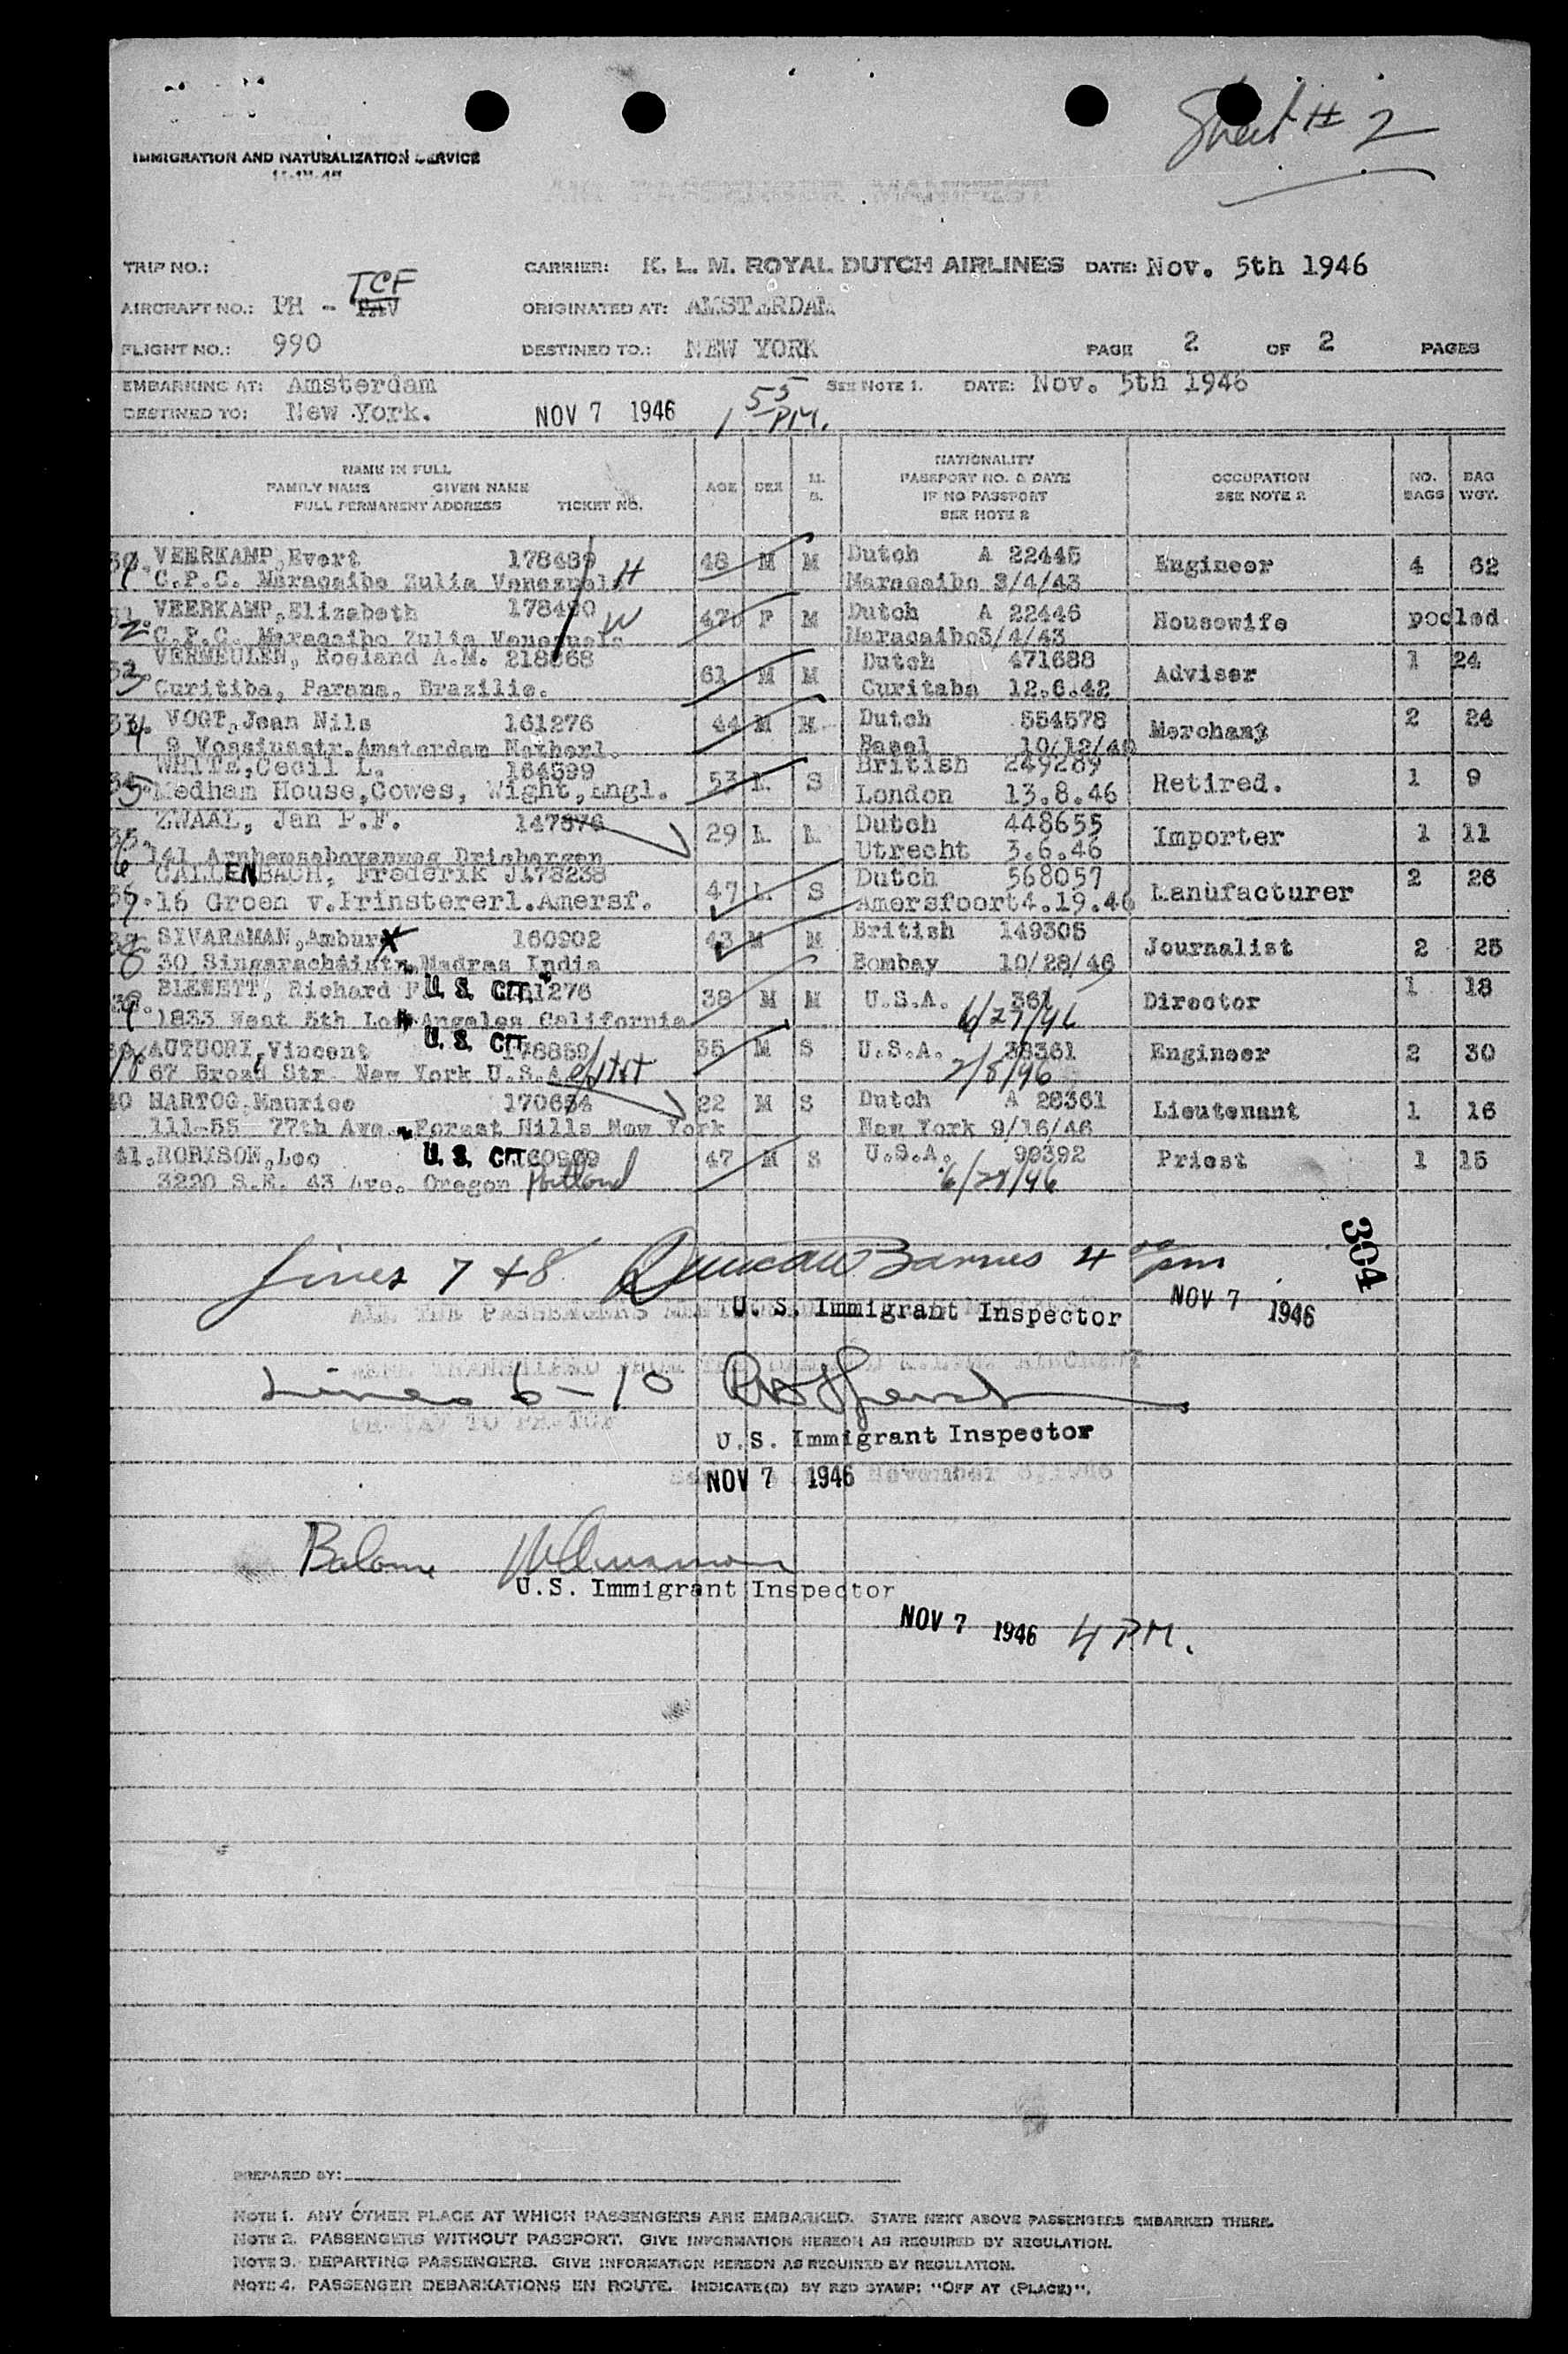 Sheet # 2
IMMIGRATION AND NATURALIZATION SERVICE
AIR PASSENGER MANIFEST
TRIP NO.: CARRIER: K. L. M. ROYAL DUTCH AIRLINES DATE: Nov. 5th 1946
TCF
AIRCRAFT NO.: PH - TAV ORIGINATED AT: AMSTERDAM
FLIGHT NO.: 990 DESTINED TO.: NEW YORK PAGE 2 OF 2 PAGES
EMBARKING AT: Amsterdam SEE NOTE 1. DATE: Nov. 5th 1946
DESTINED TO: New York. NOV 7 1946 1 55 P.M.
NAME IN FULL
FAMILY NAME GIVEN NAME
FULL PERMANENT ADDRESS TICKET NO.
AGE SEX M. S.
NATIONALITY
PASSPORT NO. & DATE
IF NO PASSPORT
SEE NOTE 2
OCCUPATION
SEE NOTE 2
NO. BAGS BAG WGT.
1 VEERKAMP, Evert 178489 48 M M Dutch A 22445 Engineer 4 62
C.P.C. Maracaibo Zulia Venezuela H Maracaibo 3/4/43
2 VEERKAMP, Elizabeth 178490 47 F M Dutch A 22446 Housewife pooled
C.P.C. Maracaibo Zulia Venezuela W Maracaibo 3/4/43
3 VERMEULEN, Roeland A.M. 218668 61 M M Dutch 471688 Adviser 1 24
Curitiba, Parana, Brazilie. Curitaba 12.6.42
4 VOGT, Jean Nils 161276 44 M M Dutch 554578 Merchant 2 24
9 Vossiusstr. Amsterdam Netherl. Basel 10/12/46
5 WHITE, Cecil L. 164599 53 M S British 249289 Retired. 1 9
Medham House, Cowes, Wight, Engl. London 13.8.46
6 ZWAAL, Jan P.F. 147876 29 M M Dutch 448655 Importer 1 11
141 Arnhemschebovenweg Driebergen Utrecht 3.6.46
7 CALLENBACH, Frederik J 178238 47 M S Dutch 568057 Manufacturer 2 26
16 Groen v. Prinstererl. Amersf. Amersfoort 4.19.46
8 SIVARAMAN, Ambur 160902 43 M M British 149305 Journalist 2 25
30 Singarachaistr. Madras India Bombay 10/28/46
9 BLEWETT, Richard F U. S. CIT. 161276 38 M M U.S.A. 361 Director 1 18
1833 West 5th Los Angeles California 6/27/46
10 AUTUORI, Vincent U. S. CIT. 178859 35 M S U.S.A. 38361 Engineer 2 30
67 Broad Str. New York U.S.A. 2/8/46
40 HARTOG, Maurice 170634 22 M S Dutch A 28361 Lieutenant 1 16
111-55 77th Ave. Forest Hills New York New York 9/16/46
41. ROBISON, Leo U. S. CIT. 160909 47 M S U.S.A. 99392 Priest 1 15
3220 S.E. 43 Ave. Oregon Portland 6/28/46
304
Lines 7 & 8 Duncan Barnes 4 00 pm
ALL THE PASSENGERS U. S. Immigrant Inspector NOV 7 1946
WERE TRANSFERRED FROM THE K.L.M. AIRCRAFT
Lines 6 - 10
PH-TAV TO PH-TCF
U.S. Immigrant Inspector
NOV 7 1946 November 6, 1946
Balance
U.S. Immigrant Inspector
NOV 7 1946 4 P.M.
PREPARED BY:
NOTE 1. ANY OTHER PLACE AT WHICH PASSENGERS ARE EMBARKED. STATE NEXT ABOVE PASSENGERS EMBARKED THERE.
NOTE 2. PASSENGERS WITHOUT PASSPORT. GIVE INFORMATION HEREON AS REQUIRED BY REGULATION.
NOTE 3. DEPARTING PASSENGERS. GIVE INFORMATION HEREON AS REQUIRED BY REGULATION.
NOTE 4. PASSENGER DEBARKATIONS EN ROUTE. INDICATE(D) BY RED STAMP: "OFF AT (PLACE)".